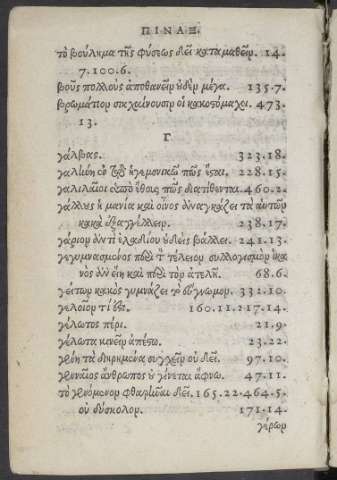 ΠΙΝΑΞ.
τὸ βούλημα τῆς φύσεως δεῖ καταμαθεῖν. 14.
7.100.6.
βοῦς πολλοὺς ἀποθανεῖν οὐδὲν μέγα. 135.7.
βρωμάτων οἱ κακοστόμαχοι. 473.
13.
Γ
γάλβας. 323.18.
γαλήνη ἐν τῷ ἡγεμονικῷ πῶς ἔσαι. 228.15.
γαλιλαῖοι ὑπὸ ἔθους πῶς διατίθενται. 460.2.
γάλλης ἡ μανία καὶ οἶνος ἀναγκάζει τὰ αὑτῶν
κακὰ ἐξαγγέλλειν. 238.17.
γάριον ἀντὶ ἐλαδίου οὐδεὶς βάλλει. 241.13.
γεγυμνασμένος πρὸς τ τέλειον συλλογισμὸν ἱκα
νὸς ἂν εἴη καὶ πρὸς τὸν ἀτελῆ. 68.6.
γείτων κακὸς γυμνάζει τὸ εὔγνωμον. 331.10.
γελοῖον τί ἐστι. 160.11.217.14.
γέλωτος πέρι. 21.9.
γέλωτα κινεῖν ἀπέστω. 23.22.
γένη τὰ διῃρημένα συγχεῖν οὐ δεῖ. 97.10.
γενναῖος ἄνθρωπος οὐ γίνεται ἄφνω. 47.11.
τὸ γενόμενον φθαρῆναι δεῖ. 165.22.464.5.
οὐ δύσκολον. 171.14.
γέρων